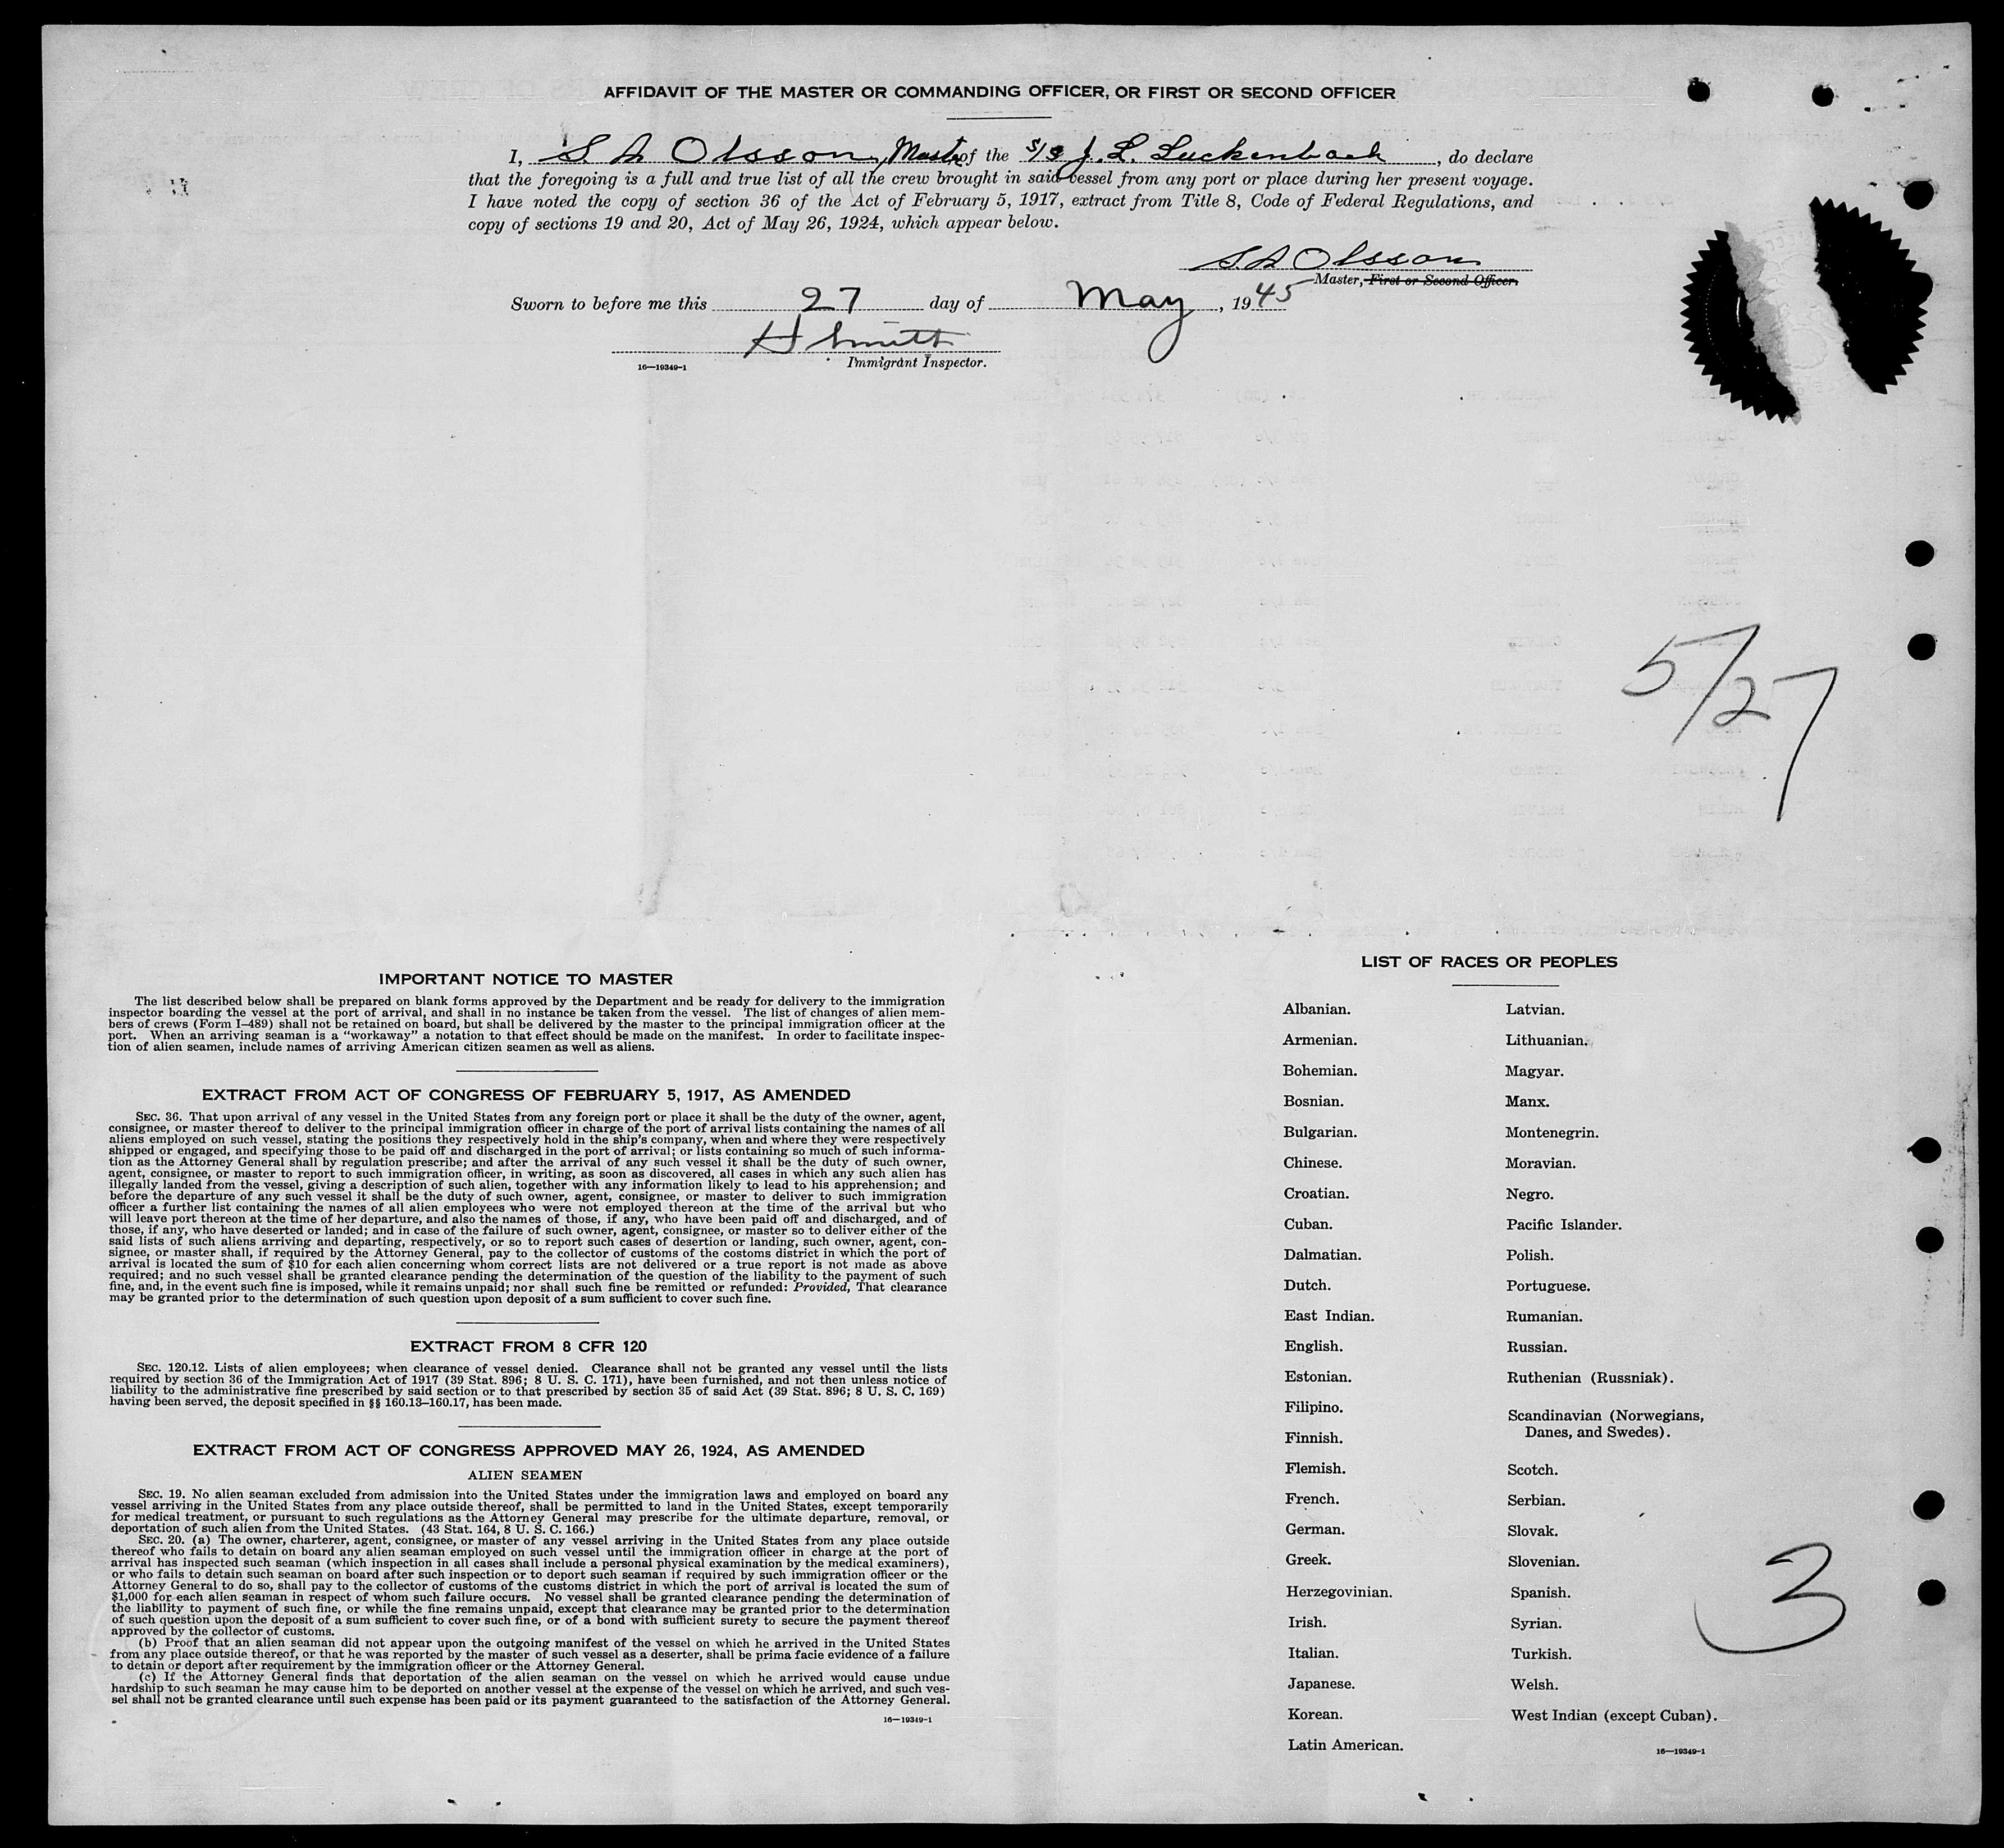 AFFIDAVIT OF THE MASTER OR COMMANDING OFFICER, OR FIRST OR SECOND OFFICER
I, S. A Olsson, Master of the S/S J. L. Luckenbach, do declare
that the foregoing is a full and true list of all the crew brought in said vessel from any port or place during her present voyage.
I have noted the copy of section 36 of the Act of February 5, 1917, extract from Title 8, Code of Federal Regulations, and
copy of sections 19 and 20, Act of May 26, 1924, which appear below.
S A Olsson
Master, First or Second Officer.
Sworn to before me this 27 day of May, 1945
H Smith
16—19349-1 Immigrant Inspector.
5/27
IMPORTANT NOTICE TO MASTER
The list described below shall be prepared on blank forms approved by the Department and be ready for delivery to the immigration
inspector boarding the vessel at the port of arrival, and shall in no instance be taken from the vessel. The list of changes of alien mem-
bers of crews (Form I-489) shall not be retained on board, but shall be delivered by the master to the principal immigration officer at the
port. When an arriving seaman is a "workaway" a notation to that effect should be made on the manifest. In order to facilitate inspec-
tion of alien seamen, include names of arriving American citizen seamen as well as aliens.
EXTRACT FROM ACT OF CONGRESS OF FEBRUARY 5, 1917, AS AMENDED
SEC. 36. That upon arrival of any vessel in the United States from any foreign port or place it shall be the duty of the owner, agent,
consignee, or master thereof to deliver to the principal immigration officer in charge of the port of arrival lists containing the names of all
aliens employed on such vessel, stating the positions they respectively hold in the ship's company, when and where they were respectively
shipped or engaged, and specifying those to be paid off and discharged in the port of arrival; or lists containing so much of such informa-
tion as the Attorney General shall by regulation prescribe; and after the arrival of any such vessel it shall be the duty of such owner,
agent, consignee, or master to report to such immigration officer, in writing, as soon as discovered, all cases in which any such alien has
illegally landed from the vessel, giving a description of such alien, together with any information likely to lead to his apprehension; and
before the departure of any such vessel it shall be the duty of such owner, agent, consignee, or master to deliver to such immigration
officer a further list containing the names of all alien employees who were not employed thereon at the time of the arrival but who
will leave port thereon at the time of her departure, and also the names of those, if any, who have been paid off and discharged, and of
those, if any, who have deserted or landed; and in case of the failure of such owner, agent, consignee, or master so to deliver either of the
said lists of such aliens arriving and departing, respectively, or so to report such cases of desertion or landing, such owner, agent, con-
signee, or master shall, if required by the Attorney General, pay to the collector of customs of the costoms district in which the port of
arrival is located the sum of $10 for each alien concerning whom correct lists are not delivered or a true report is not made as above
required; and no such vessel shall be granted clearance pending the determination of the question of the liability to the payment of such
fine, and, in the event such fine is imposed, while it remains unpaid; nor shall such fine be remitted or refunded: Provided, That clearance
may be granted prior to the determination of such question upon deposit of a sum sufficient to cover such fine.
EXTRACT FROM 8 CFR 120
SEC. 120.12. Lists of alien employees; when clearance of vessel denied. Clearance shall not be granted any vessel until the lists
required by section 36 of the Immigration Act of 1917 (39 Stat. 896; 8 U. S. C. 171), have been furnished, and not then unless notice of
liability to the administrative fine prescribed by said section or to that prescribed by section 35 of said Act (39 Stat. 896; 8 U. S. C. 169)
having been served, the deposit specified in §§ 160.13–160.17, has been made.
EXTRACT FROM ACT OF CONGRESS APPROVED MAY 26, 1924, AS AMENDED
ALIEN SEAMEN
SEC. 19. No alien seaman excluded from admission into the United States under the immigration laws and employed on board any
vessel arriving in the United States from any place outside thereof, shall be permitted to land in the United States, except temporarily
for medical treatment, or pursuant to such regulations as the Attorney General may prescribe for the ultimate departure, removal, or
deportation of such alien from the United States. (43 Stat. 164, 8 U. S. C. 166.)
SEC. 20. (a) The owner, charterer, agent, consignee, or master of any vessel arriving in the United States from any place outside
thereof who fails to detain on board any alien seaman employed on such vessel until the immigration officer in charge at the port of
arrival has inspected such seaman (which inspection in all cases shall include a personal physical examination by the medical examiners),
or who fails to detain such seaman on board after such inspection or to deport such seaman if required by such immigration officer or the
Attorney General to do so, shall pay to the collector of customs of the customs district in which the port of arrival is located the sum of
$1,000 for each alien seaman in respect of whom such failure occurs. No vessel shall be granted clearance pending the determination of
the liability to payment of such fine, or while the fine remains unpaid, except that clearance may be granted prior to the determination
of such question upon the deposit of a sum sufficient to cover such fine, or of a bond with sufficient surety to secure the payment thereof
approved by the collector of customs.
(b) Proof that an alien seaman did not appear upon the outgoing manifest of the vessel on which he arrived in the United States
from any place outside thereof, or that he was reported by the master of such vessel as a deserter, shall be prima facie evidence of a failure
to detain or deport after requirement by the immigration officer or the Attorney General.
(c) If the Attorney General finds that deportation of the alien seaman on the vessel on which he arrived would cause undue
hardship to such seaman he may cause him to be deported on another vessel at the expense of the vessel on which he arrived, and such ves-
sel shall not be granted clearance until such expense has been paid or its payment guaranteed to the satisfaction of the Attorney General.
16—19349-1
LIST OF RACES OR PEOPLES
Albanian.
Armenian.
Bohemian.
Bosnian.
Bulgarian.
Chinese.
Croatian.
Cuban.
Dalmatian.
Dutch.
East Indian.
English.
Estonian.
Filipino.
Finnish.
Flemish.
French.
German.
Greek.
Herzegovinian.
Irish.
Italian.
Japanese.
Korean.
Latin American.
Latvian.
Lithuanian.
Magyar.
Manx.
Montenegrin.
Moravian.
Negro.
Pacific Islander.
Polish.
Portuguese.
Rumanian.
Russian.
Ruthenian (Russniak).
Scandinavian (Norwegians,
Danes, and Swedes).
Scotch.
Serbian.
Slovak.
Slovenian.
Spanish.
Syrian.
Turkish.
Welsh.
West Indian (except Cuban).
16—19349-1
3